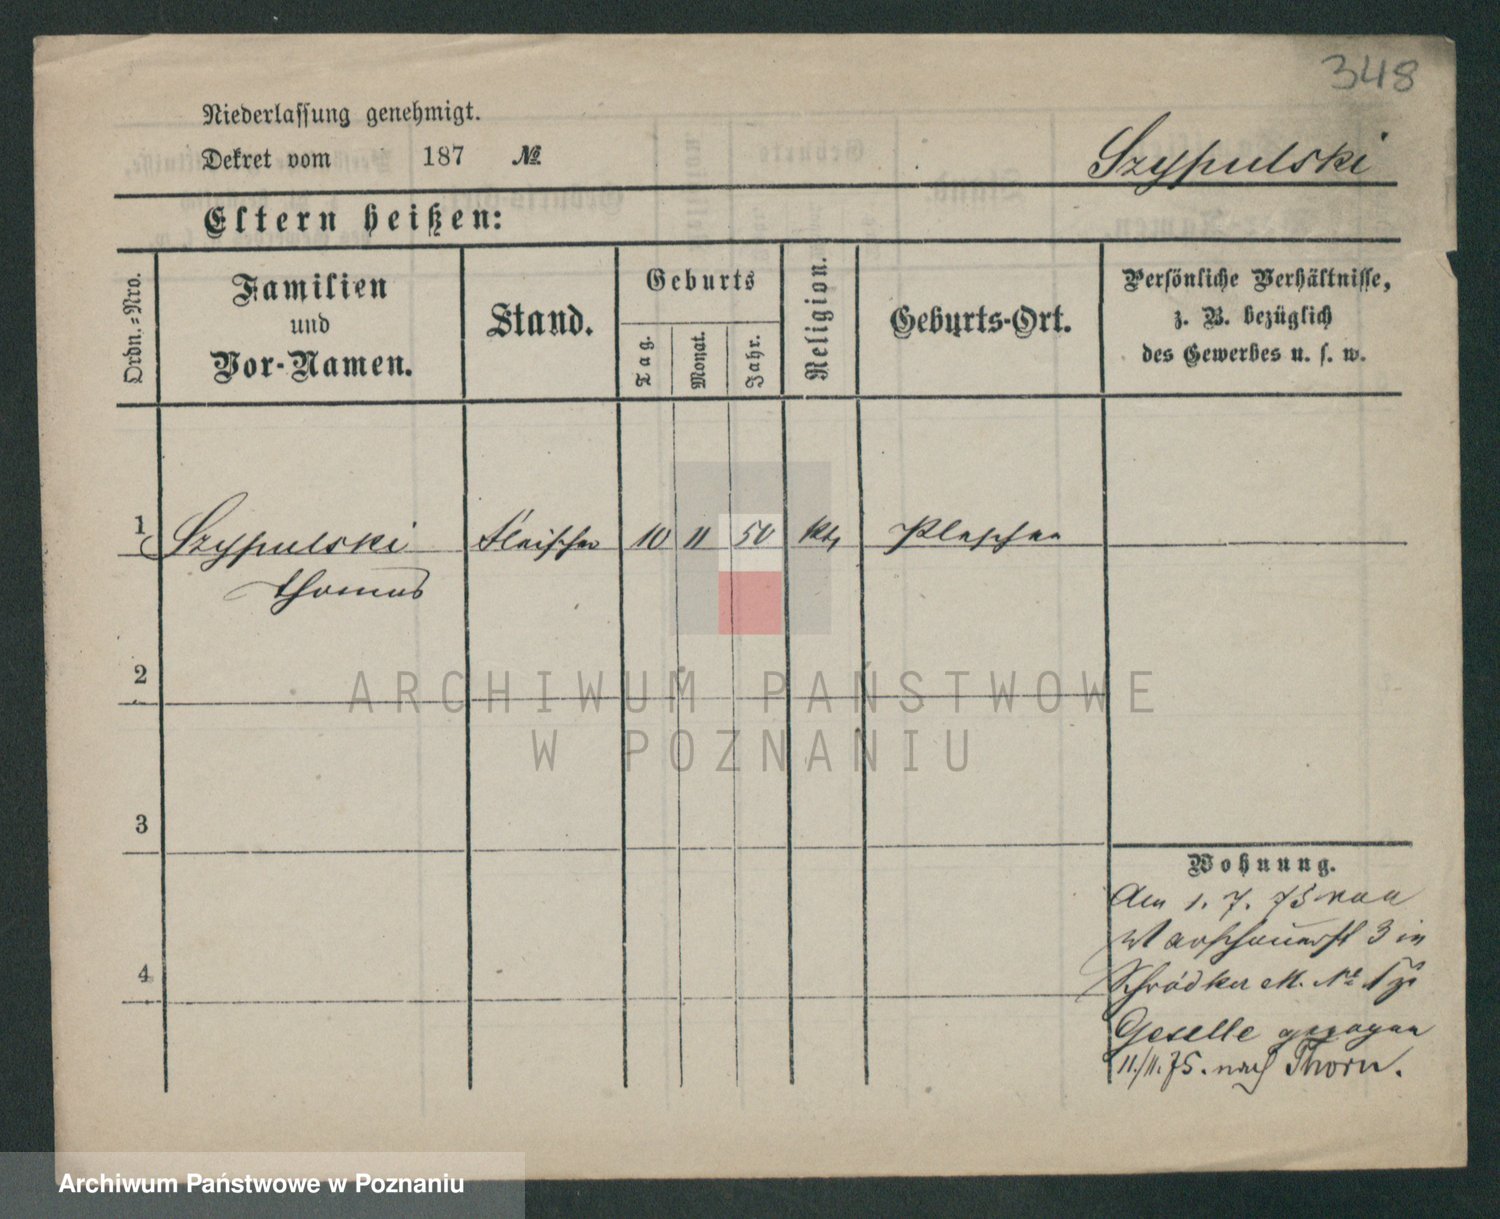 348
Niederlassung genehmigt.
Dekret vom 187 №
Szypulski
Eltern heißen:
Ordn.-Nro.
Familien
und
Vor-Namen.
Stand.
Geburts
Tag.
Monat.
Jahr.
Religion.
Geburts-Ort.
Persönliche Verhältnisse,
z. B. bezüglich
des Gewerbes u. s. w.
1 Szypulski Fleischer 10 11 50 kth Pleschen
Thomas
2
3
4
Wohnung.
Am 1. 7. 75 von
Warschauerst 3 in
Schrödker M. No 1
Geselle gezogen
11./11. 75. nach Thorn.
ARCHIWUM PAŃSTWOWE
W POZNANIU
Archiwum Państwowe w Poznaniu